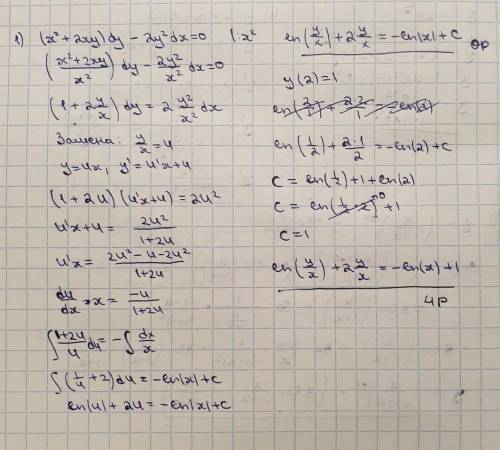 1) (x²+2xy)dy - 2y²dx=0 |:x²
((x²+2xy)/x²) dy - (2y²/x²) dx=0
(1+2 y/x) dy = 2 (y²/x²) dx
Замена: y/x = u
y=ux, y' = u'x+u
(1+2u)(u'x+u)=2u²
u'x+u = 2u²/(1+2u)
u'x = (2u²-u-2u²)/(1+2u)
du/dx · x = -u/(1+2u)
∫ (1+2u)/u du = -∫ dx/x
∫(1/u + 2)du = -ln|x|+c
ln|u| + 2u = -ln|x|+c
ln(y/x) + 2 y/x = -ln|x| + c
ОР
y(2)=1
ln(1/2) + (2·1)/2 = -ln(2) + c
c = ln(1/2)+1+ln(2)
c = ln(1/2 · 2)⁰ + 1
c=1
ln(y/x) + 2 y/x = -ln(x) + 1
ЧР